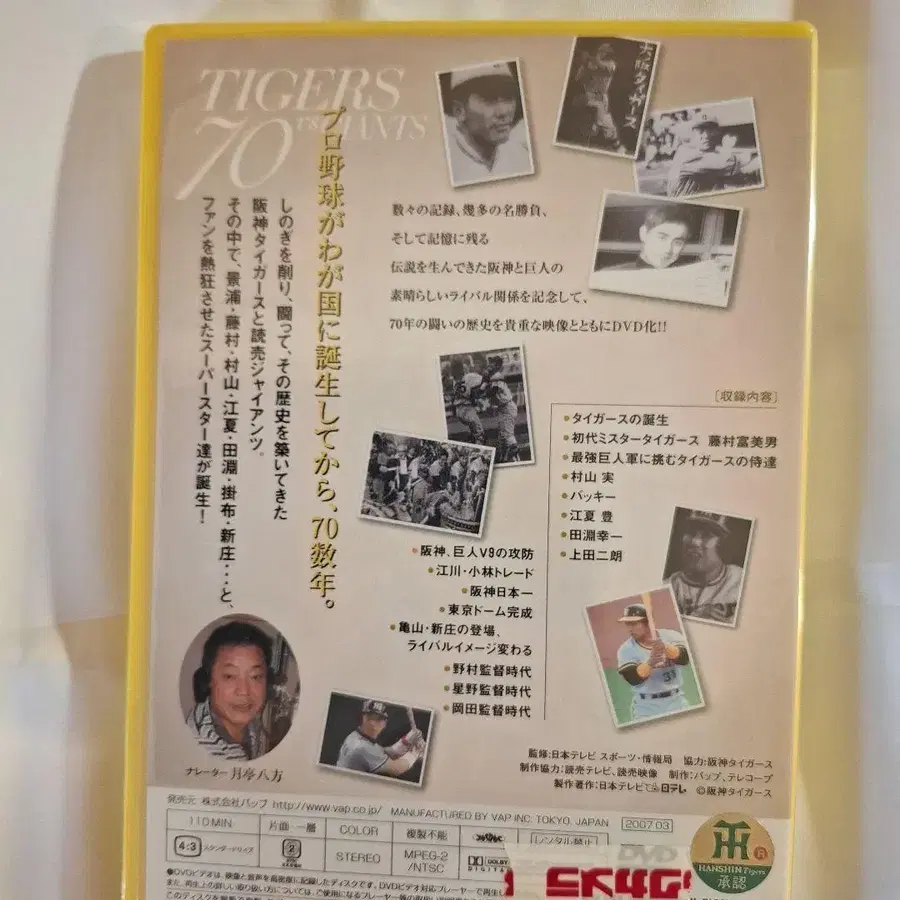 TIGERS
70 vs GIANTS
プロ野球がわが国に誕生してから、70数年。
しのぎを削り、闘って、その歴史を築いてきた
阪神タイガースと読売ジャイアンツ。
その中で、景浦・藤村・村山・江夏・田淵・掛布・新庄・・・と、
ファンを熱狂させたスーパースター達が誕生！
大阪タイガース
数々の記録、幾多の名勝負、
そして記憶に残る
伝説を生んできた阪神と巨人の
素晴らしいライバル関係を記念して、
70年の闘いの歴史を貴重な映像とともにDVD化!!
［収録内容］
●タイガースの誕生
●初代ミスタータイガース 藤村富美男
●最強巨人軍に挑むタイガースの侍達
●村山 実
●バッキー
●江夏 豊
●田淵幸一
●上田二朗
●阪神、巨人V9の攻防
●江川・小林トレード
●阪神日本一
●東京ドーム完成
●亀山・新庄の登場、
ライバルイメージ変わる
●野村監督時代
●星野監督時代
●岡田監督時代
31
ナレーター 月亭八方
監修:日本テレビ スポーツ・情報局 協力:阪神タイガース
制作協力:読売テレビ、読売映像 制作:バップ、テレコープ
製作著作:日本テレビ 日テレ ©阪神タイガース
発売元 株式会社バップ http://www.vap.co.jp/ MANUFACTURED BY VAP INC. TOKYO. JAPAN
110MIN
片面・一層
COLOR
複製不能
レンタル禁止
2007.03
4:3 スタンダードサイズ
2
STEREO
MPEG-2
/NTSC
DOLBY
DIGITAL
DVD
HANSHIN Tigers
承認
®
●DVDビデオは、映像と音声を高密度に記録したディスクです。DVDビデオ対応プレーヤーで再生し